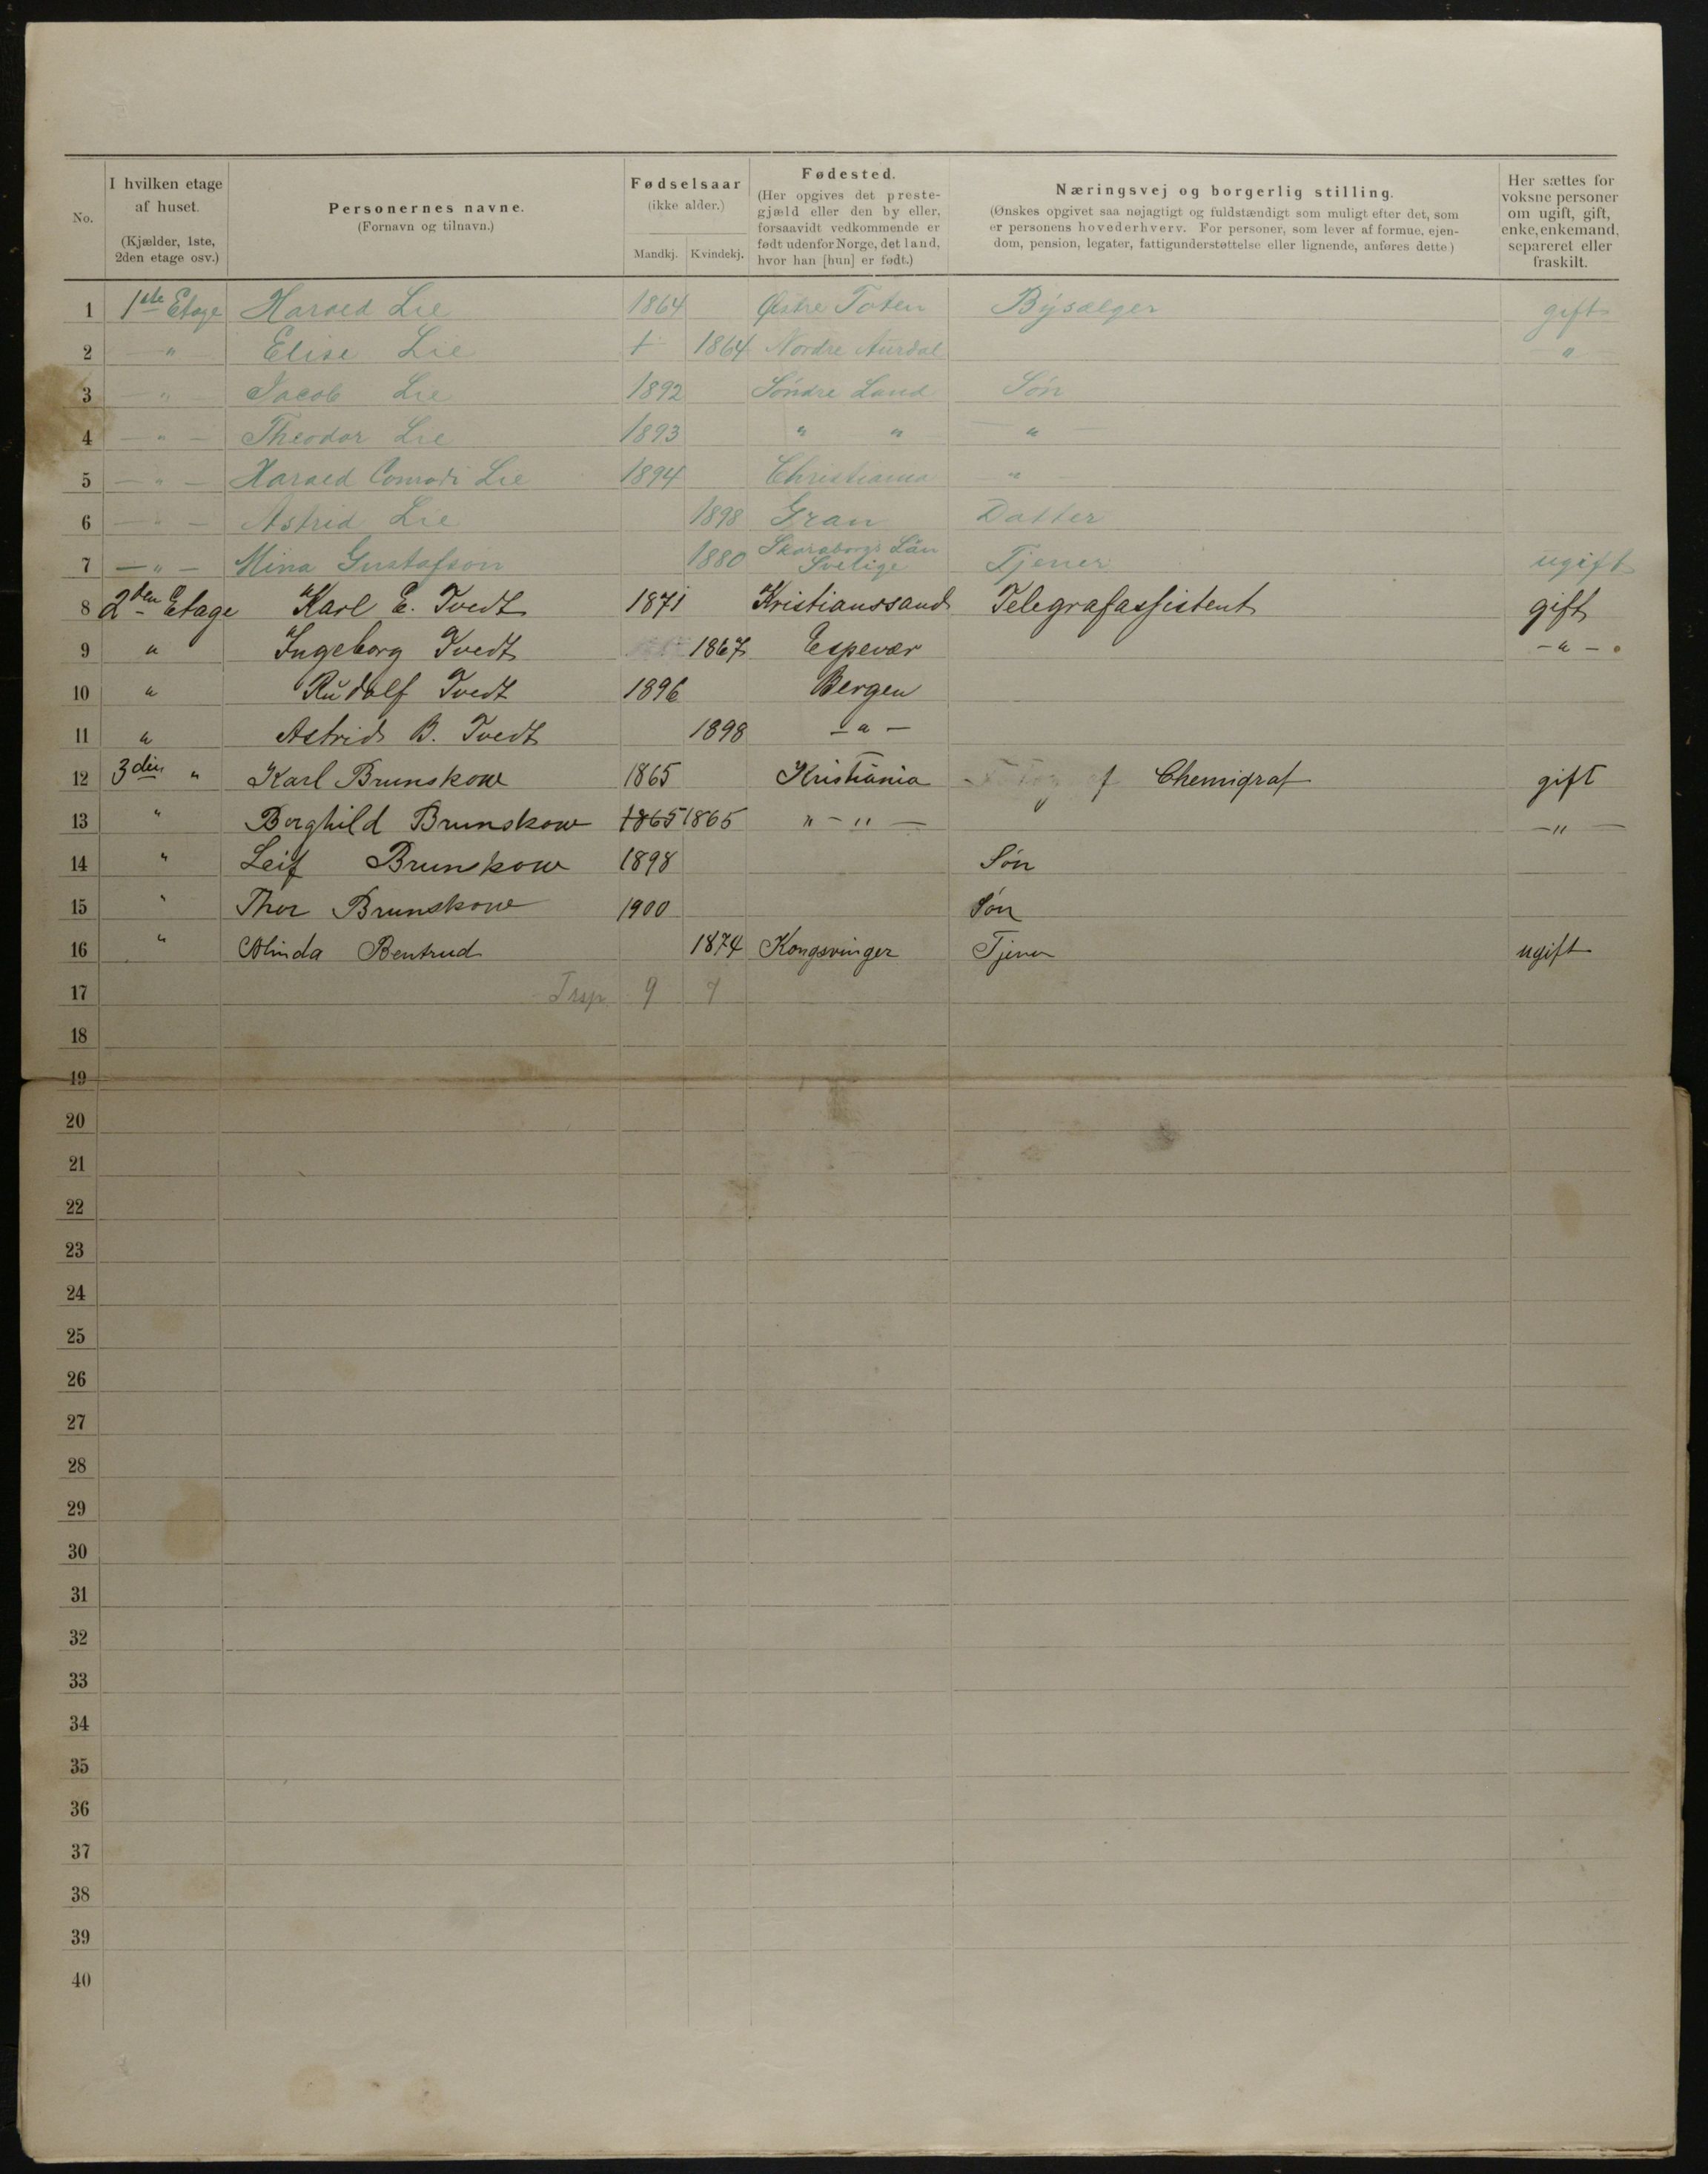 No. | I hvilken etage af huset. (Kjælder, 1ste, 2den etage osv.) | Personernes navne. (Fornavn og tilnavn.) | Fødselsaar (ikke alder.) Mandkj. | Kvindekj. | Fødested. (Her opgives det prestegjæld eller den by eller, forsaavidt vedkommende er født udenfor Norge, det land, hvor han [hun] er født.) | Næringsvej og borgerlig stilling. (Ønskes opgivet saa nøjagtigt og fuldstændigt som muligt efter det, som er personens hovederhverv. For personer, som lever af formue, ejendom, pension, legater, fattigunderstøttelse eller lignende, anføres dette) | Her sættes for voksne personer om ugift, gift, enke, enkemand, separeret eller fraskilt.
1 | 1ste Etage | Harald Lie | 1864 | | Østre Toten | Bysælger | gift
2 | " | Elise Lie | | 1864 | Nordre Aurdal | | "
3 | " | Jacob Lie | 1892 | | Söndre Land | Sön
4 | — " — | Theodor Lie | 1893 | | " " | "
5 | — " — | Harald Conradi Lie | 1894 | | Christiania | "
6 | — " — | Astrid Lie | | 1898 | Gran | Datter
7 | — " — | Mina Gustafson | | 1880 | Skaraborgs Län Sverige | Tjener | ugift
8 | 2den Etage | Karl E. Tvedt | 1871 | | Kristianssand | Telegrafassistent | gift
9 | " | Ingeborg Tvedt | | 1867 | Espevær | | — " —
10 | " | Rudolf Tvedt | 1896 | | Bergen
11 | " | Astrid B. Tvedt | | 1898 | — " —
12 | 3die " | Karl Brunskow | 1865 | | Kristiania | Chemigraf | gift
13 | " | Borghild Brunskow | 1865 | 1865 | " — " — | | — " —
14 | " | Leif Brunskow | 1898 | | | Søn
15 | " | Thor Brunskow | 1900 | | | Søn
16 | " | Alinda Bentrud | | 1874 | Kongsvinger | Tjener | ugift
17 | | Trsp. | 9 | 7
18
19
20
21
22
23
24
25
26
27
28
29
30
31
32
33
34
35
36
37
38
39
40